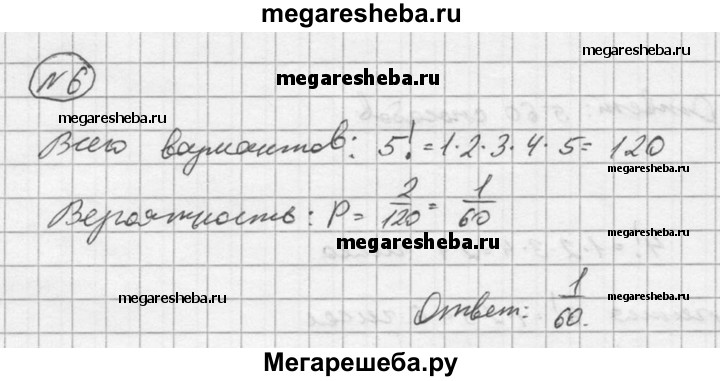 megaresheba.ru
megaresheba.ru
№6
megaresheba.ru
megaresheba.ru
Всего вариантов: 5! = 1·2·3·4·5 = 120
megaresheba.ru
megaresheba.ru
Вероятность: P = 2/120 = 1/60
megaresheba.ru
megaresheba.ru
megaresheba.ru
Ответ: 1/60.
Мегарешеба.ру